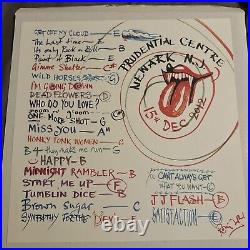 GET OFF MY CLOUD — E
The Last time — E
Its only Rock n Roll — E
Paint it Black — E
Gimme Shelter — C#
WILD HORSES — G
I'm GOING DOWN — A
DEAD FLOWERS — D
WHO DO YOU LOVE?
Doom n' gloom — A
ONE MORE SHOT — G
MISS YOU — A
HONKY TONK WOMEN — G
B4 they make me run — G
HAPPY — B
MIDNIGHT RAMBLER — B
START ME UP — F
TUMBLIN DICE — B
BROWN SUGAR — C
SYMPATHY FOR THE DEVIL — E
PRUDENTIAL CENTRE
NEWARK N.J
15th DEC 2012
YOU CANT ALWAYS GET
THAT YOU WANT — C
JJ FLASH — B
SATISFACTION — E